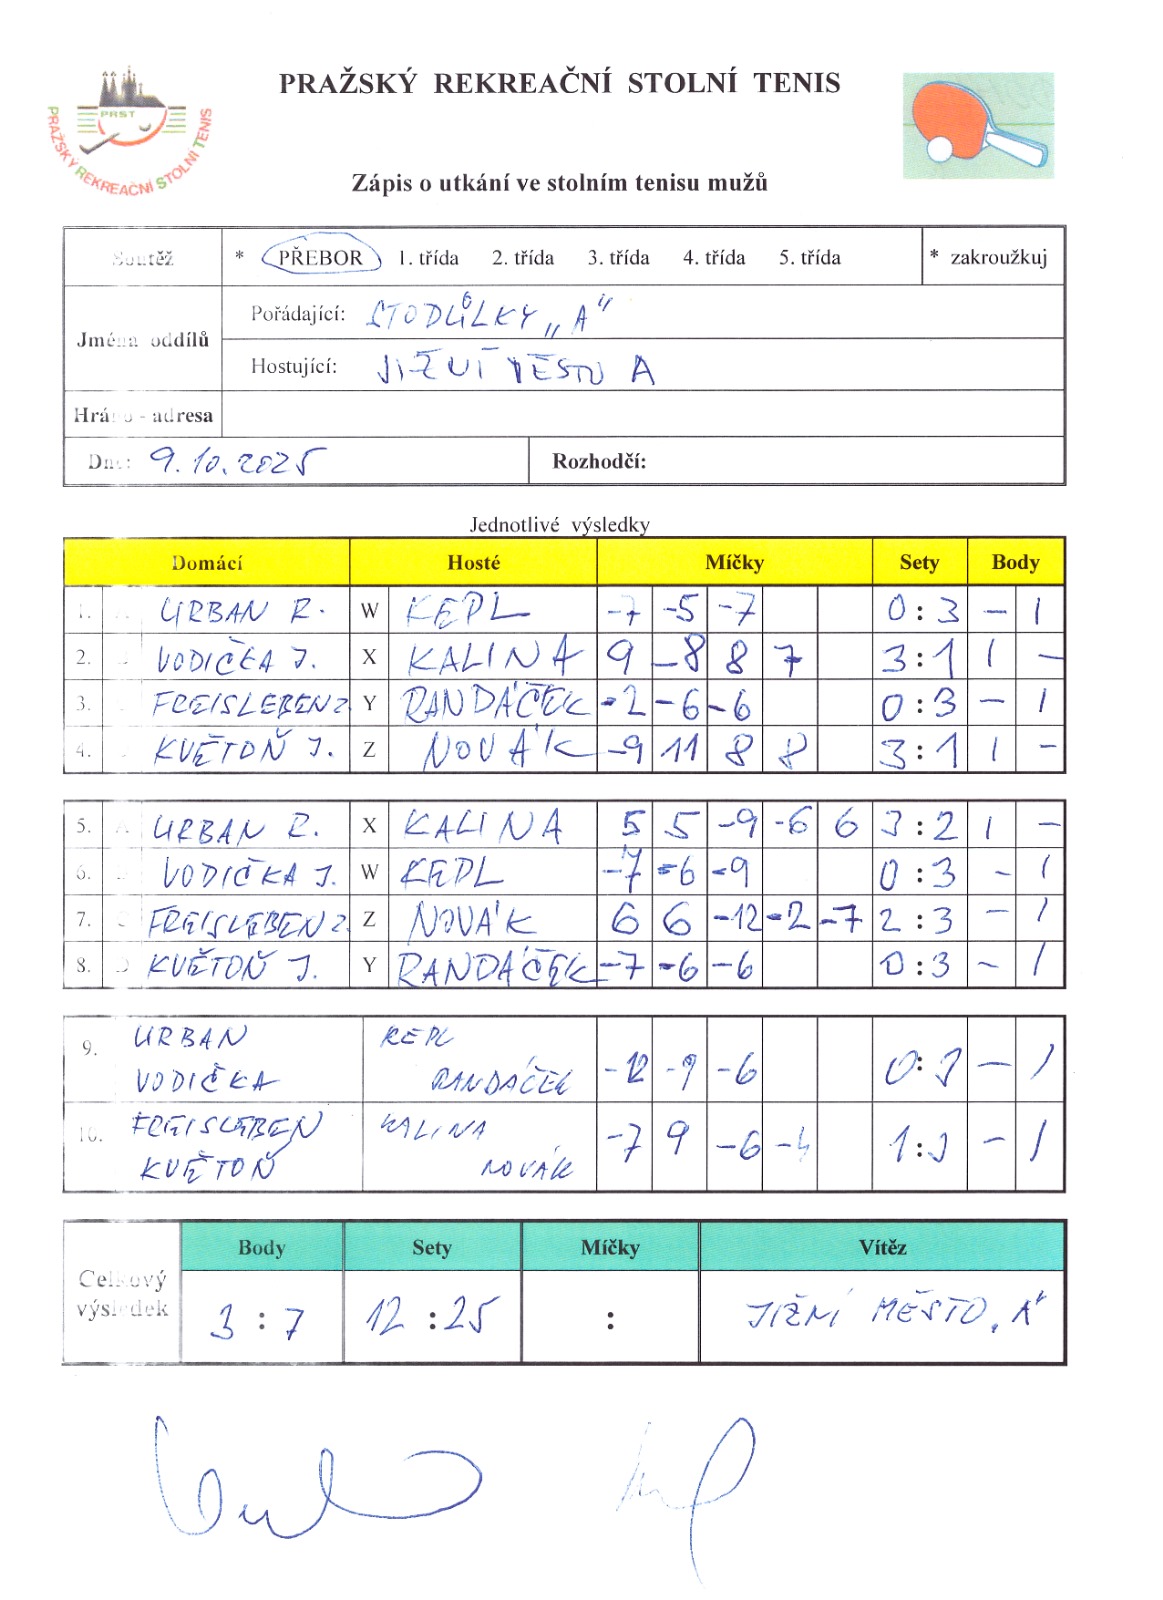 PRAŽSKÝ REKREAČNÍ STOLNÍ TENIS
PRST
PRAŽSKÝ REKREAČNÍ STOLNÍ TENIS
Zápis o utkání ve stolním tenisu mužů
Soutěž * PŘEBOR 1. třída 2. třída 3. třída 4. třída 5. třída * zakroužkuj
Jména oddílů
Pořádající: STODŮLKY „A"
Hostující: JIŽNÍ MĚSTO A
Hráno - adresa
Dne: 9.10.2025 Rozhodčí:
Jednotlivé výsledky
Domácí Hosté Míčky Sety Body
1. A URBAN R. W KEPL -7 -5 -7 0:3 - 1
2. B VODIČKA J. X KALINA 9 -8 8 7 3:1 1 -
3. C FREISLEBEN Z Y RANDÁČEK -2 -6 -6 0:3 - 1
4. D KVĚTOŇ J. Z NOVÁK -9 11 8 8 3:1 1 -
5. A URBAN R. X KALINA 5 5 -9 -6 6 3:2 1 -
6. B VODIČKA J. W KEPL -7 -6 -9 0:3 - 1
7. C FREISLEBEN Z. Z NOVÁK 6 6 -12 -2 -7 2:3 - 1
8. D KVĚTOŇ J. Y RANDÁČEK -7 -6 -6 0:3 - 1
9. URBAN KEPL
VODIČKA RANDÁČEK -12 -9 -6 0:3 - 1
10. FREISLEBEN KALINA
KVĚTOŇ NOVÁK -7 9 -6 -4 1:3 - 1
Celkový výsledek
Body Sety Míčky Vítěz
3:7 12:25 : JIŽNÍ MĚSTO „A"